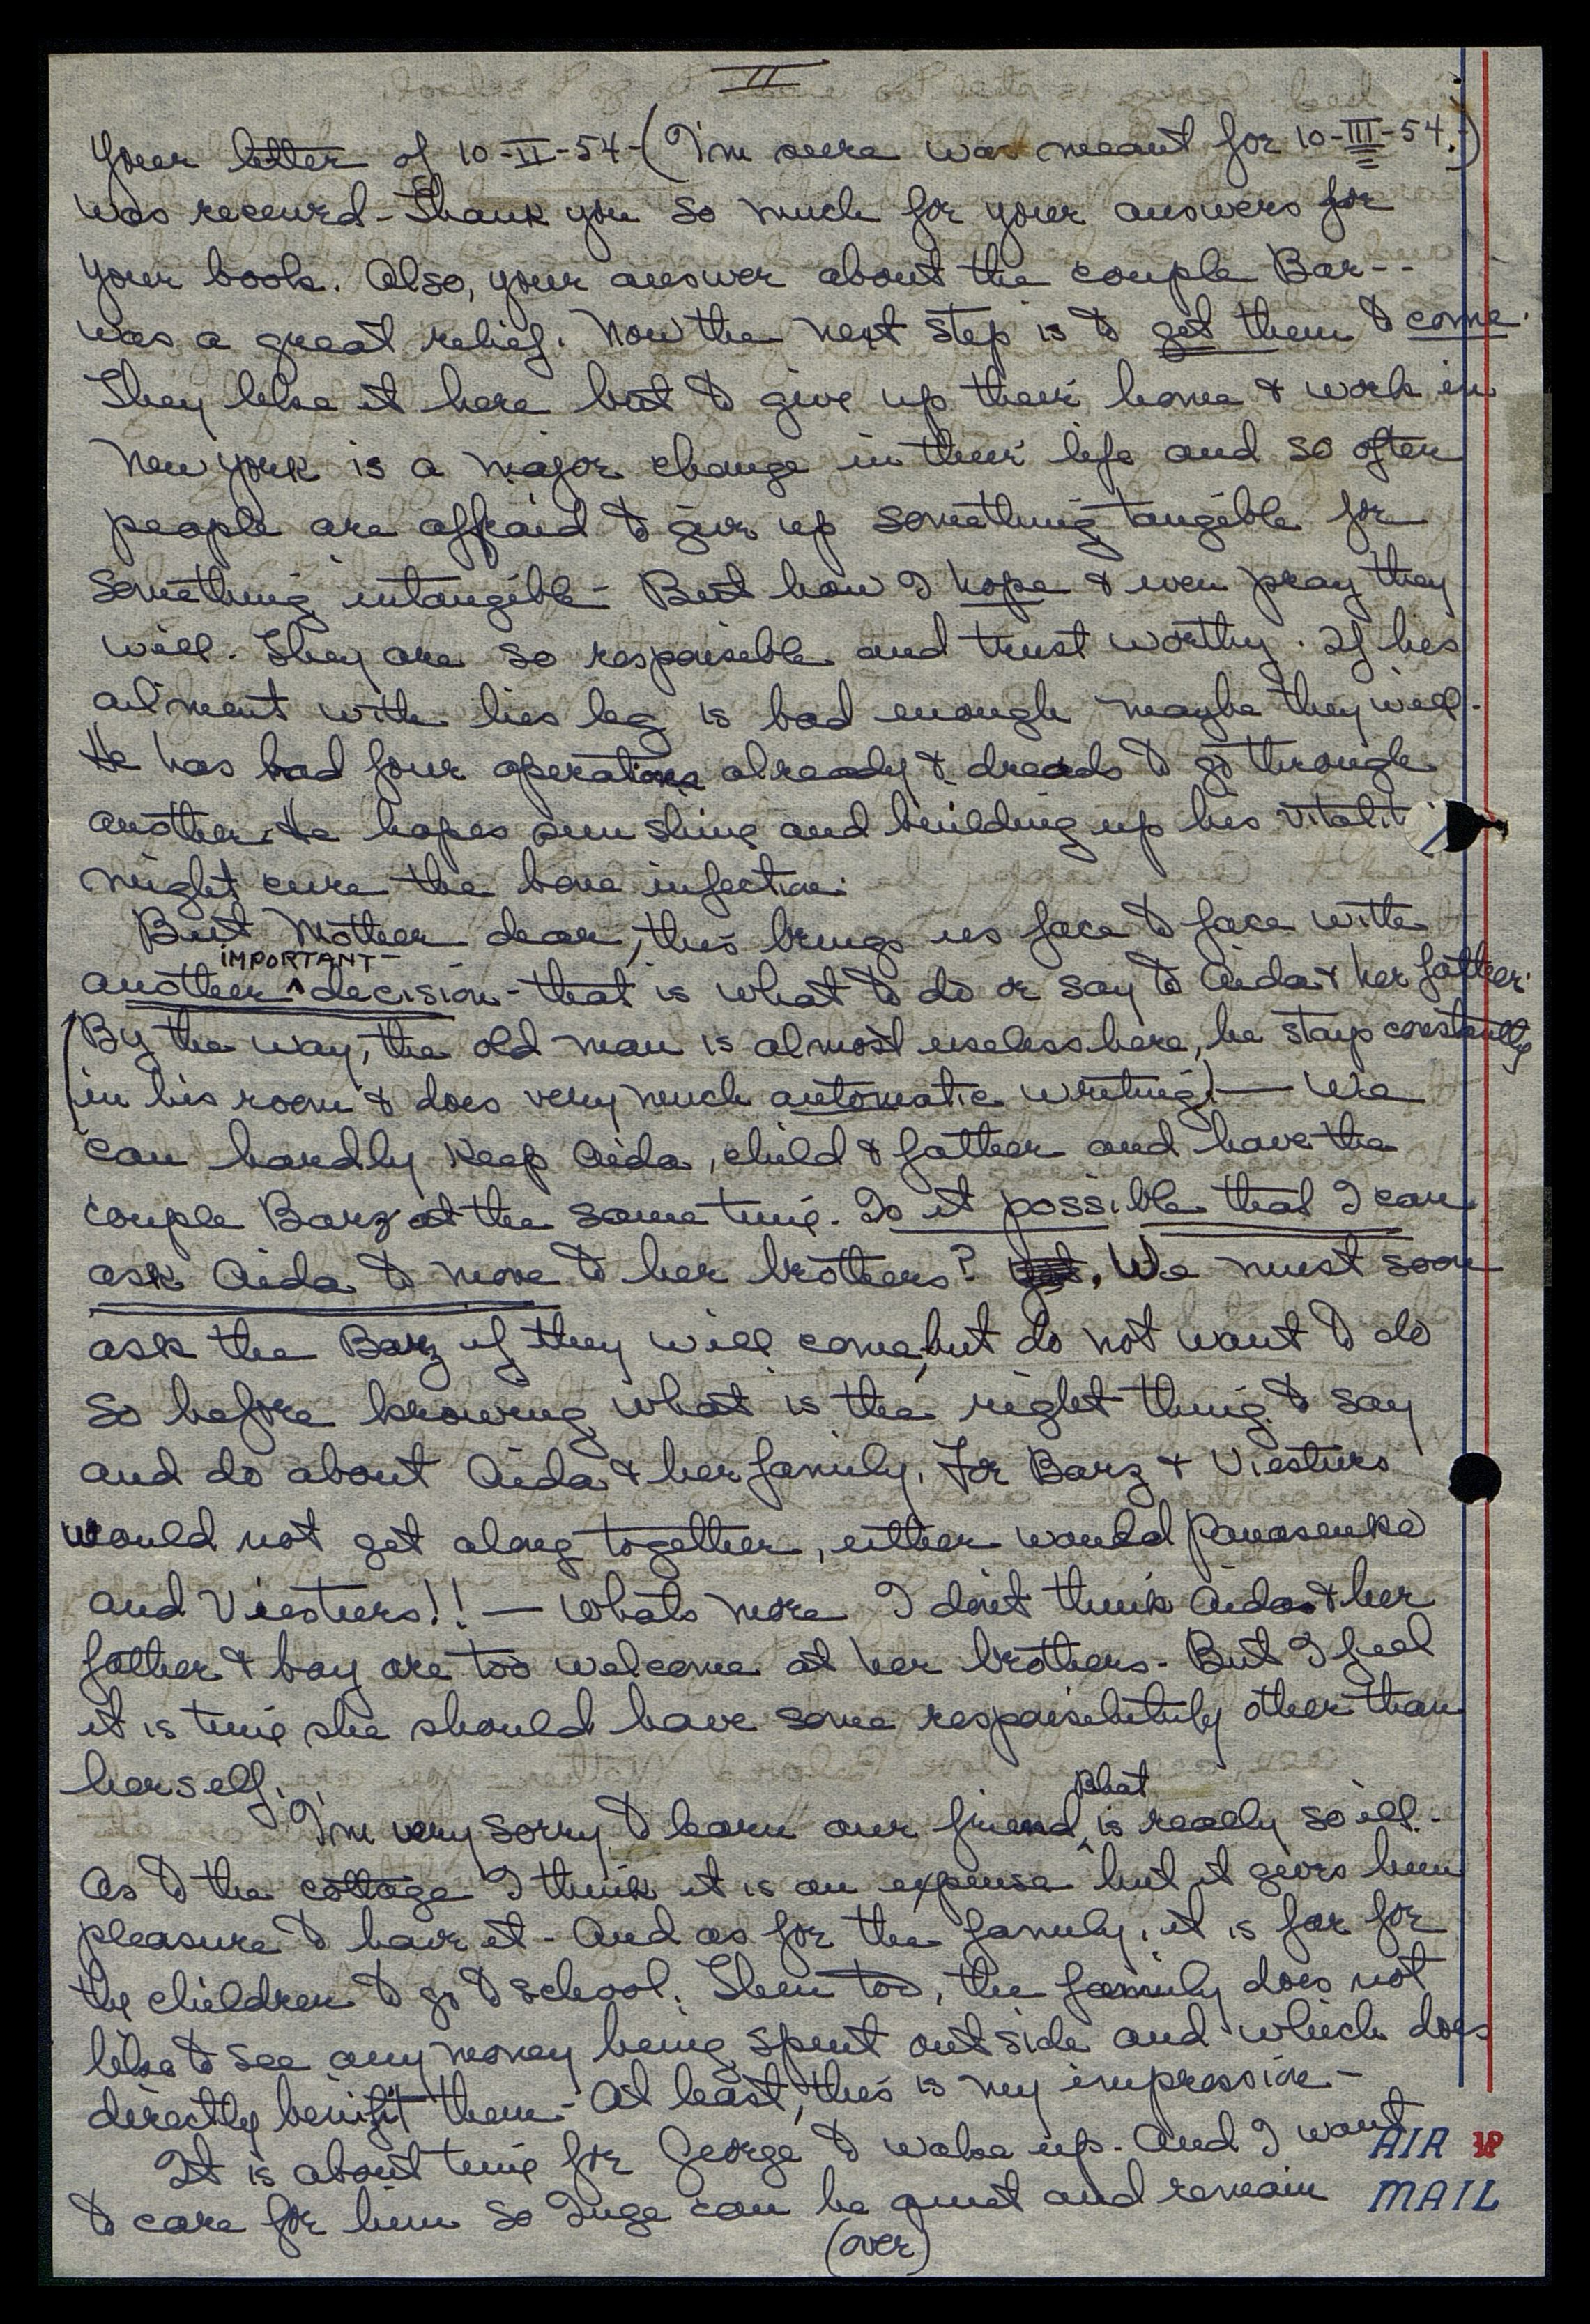 II
Your letter of 10-II-54-(I'm sure was meant for 10-III-54.)
was received - Thank you so much for your answers for
your book. Also, your answer about the couple Bar--
was a great relief. Now the next step is to get them to come.
They like it here but to give up their home & work in
New York is a major change in their life and so often
people are affraid to give up something tangible for
something intangible - But how I hope & even pray they
will. They are so responsible and trust worthy. If his
ailment with his leg is bad enough maybe they will.
He has had four operations already & dreads to go through
another. He hopes sun shine and building up his vitalit
might cure the bone infection.
But Mother dear, this brings us face to face with
another IMPORTANT decision - that is what to do or say to Aida & her father.
(By the way, the old man is almost useless here, he stays constantly
in his room & does very much automatic writing.) — We
can hardly keep Aida, child & father and have the
couple Barz at the same time. Is it possible that I can
ask Aida to move to her brothers? We must soon
ask the Barz if they will come, but do not want to do
so before knowing what is the right thing to say
and do about Aida & her family. For Barz & Viesturs
would not get along together, either would Panasenko
and Viesturs!! — Whats more I don't think Aida & her
father & boy are too welcome at her brothers - But I feel
it is time she should have some responsibility other than
herself.
I'm very sorry to learn our friend Bhat is really so ill. -
As to the cottage I think it is an expense but it gives him
pleasure to have it - And as for the family, it is far for
the children to go to school. Then too, the family does not
like to see any money being spent outside and which does
directly benifit them - At least, this is my impression -
It is about time for George to wake up. And I want
to care for him so Inge can be quiet and remain
(over)
AIR
MAIL